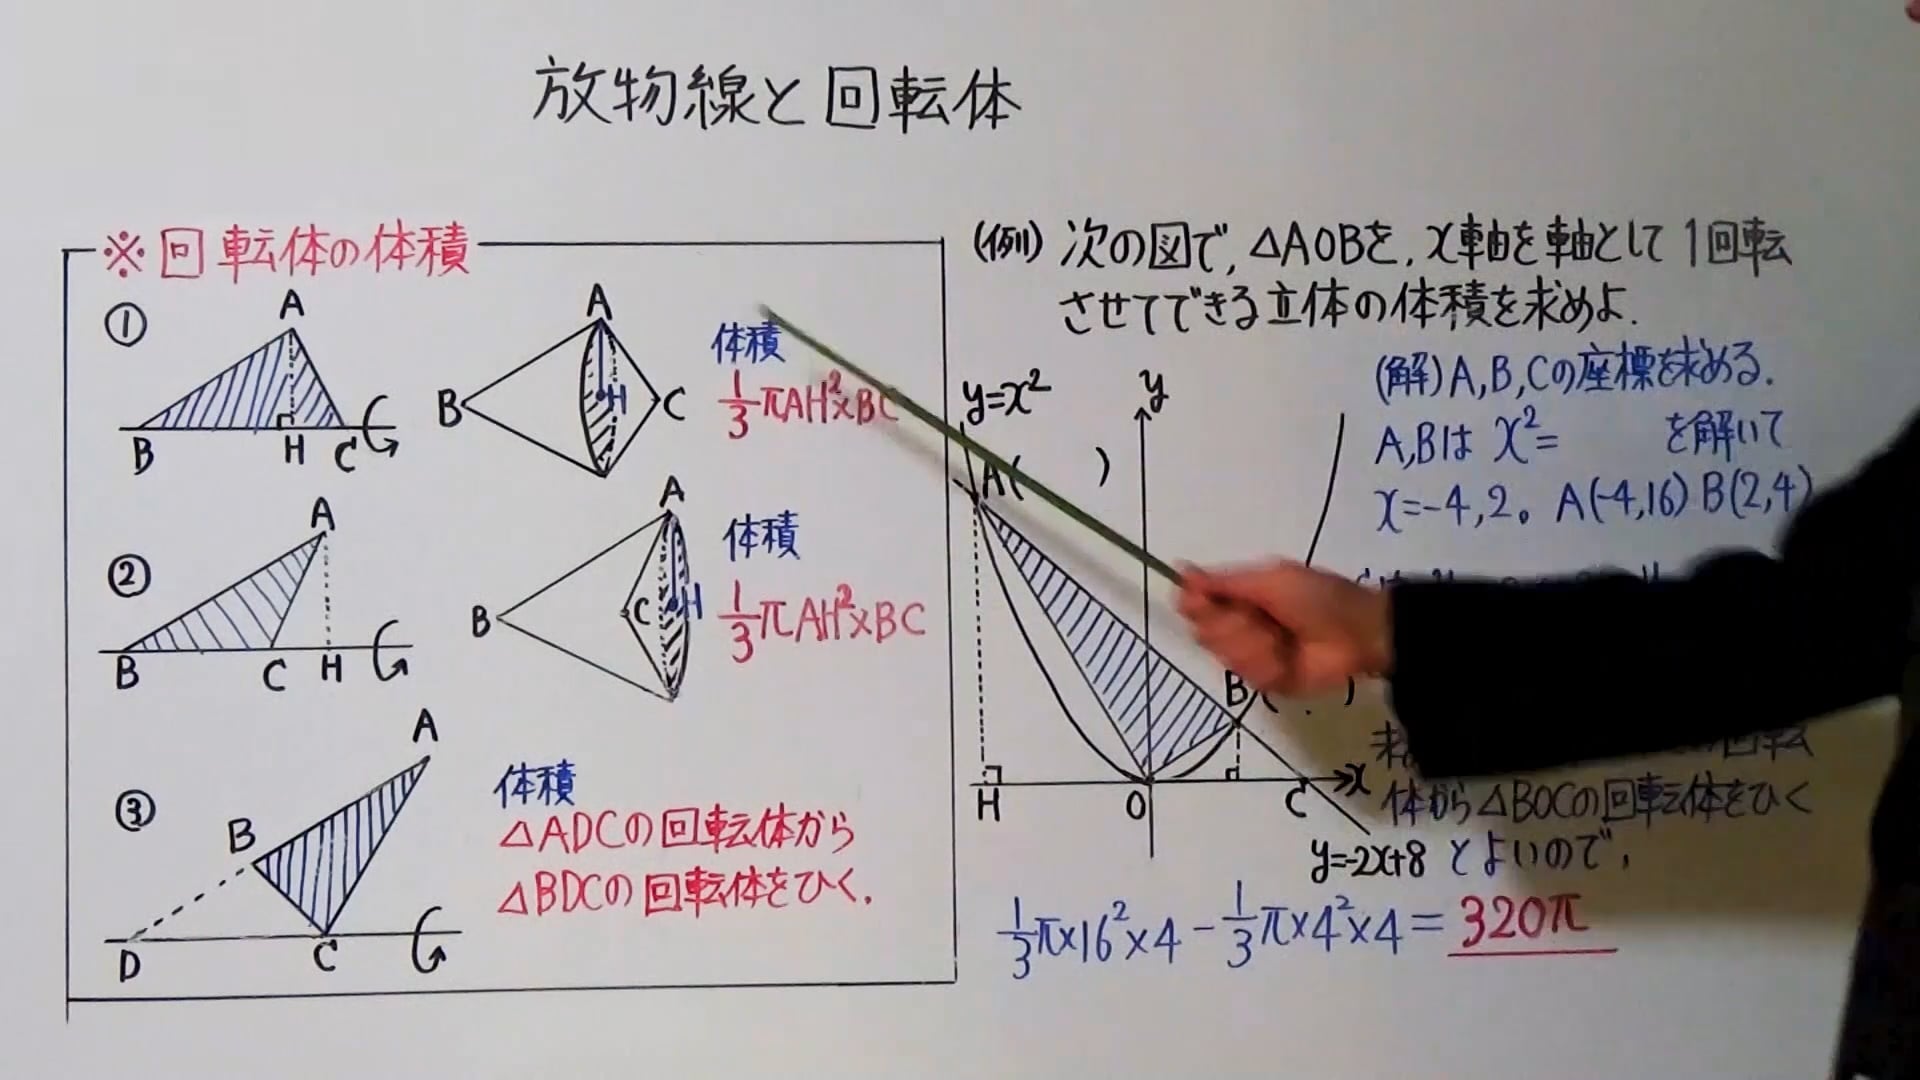 放物線と回転体
※回転体の体積
①
A
B
H
C
A
B
H
C
体積
1/3πAH²×BC
②
A
B
C
H
A
B
C
H
体積
1/3πAH²×BC
③
A
B
D
C
体積
△ADCの回転体から
△BDCの回転体をひく.
(例) 次の図で, △AOBを, x軸を軸として1回転
させてできる立体の体積を求めよ.
y=x²
y
A( )
B( )
H
O
C
x
y=-2x+8
(解)A,B,Cの座標を求める.
A,Bは x²= を解いて
x=-4,2。 A(-4,16) B(2,4)
回転
体から△BOCの回転体をひく
とよいので,
1/3π×16²×4-1/3π×4²×4=320π